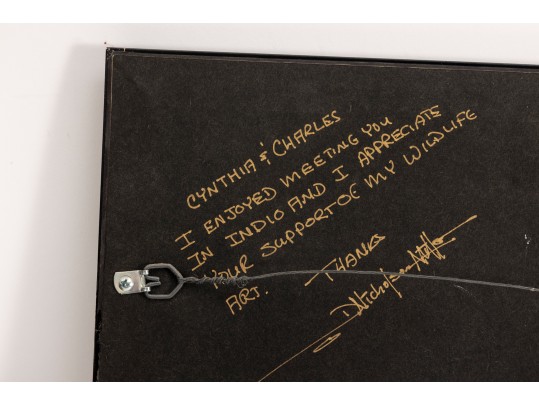 CYNTHIA & CHARLES
I ENJOYED MEETING YOU
IN INDIO AND I APPRECIATE
YOUR SUPPORT OF MY WILDLIFE
ART. THANKS